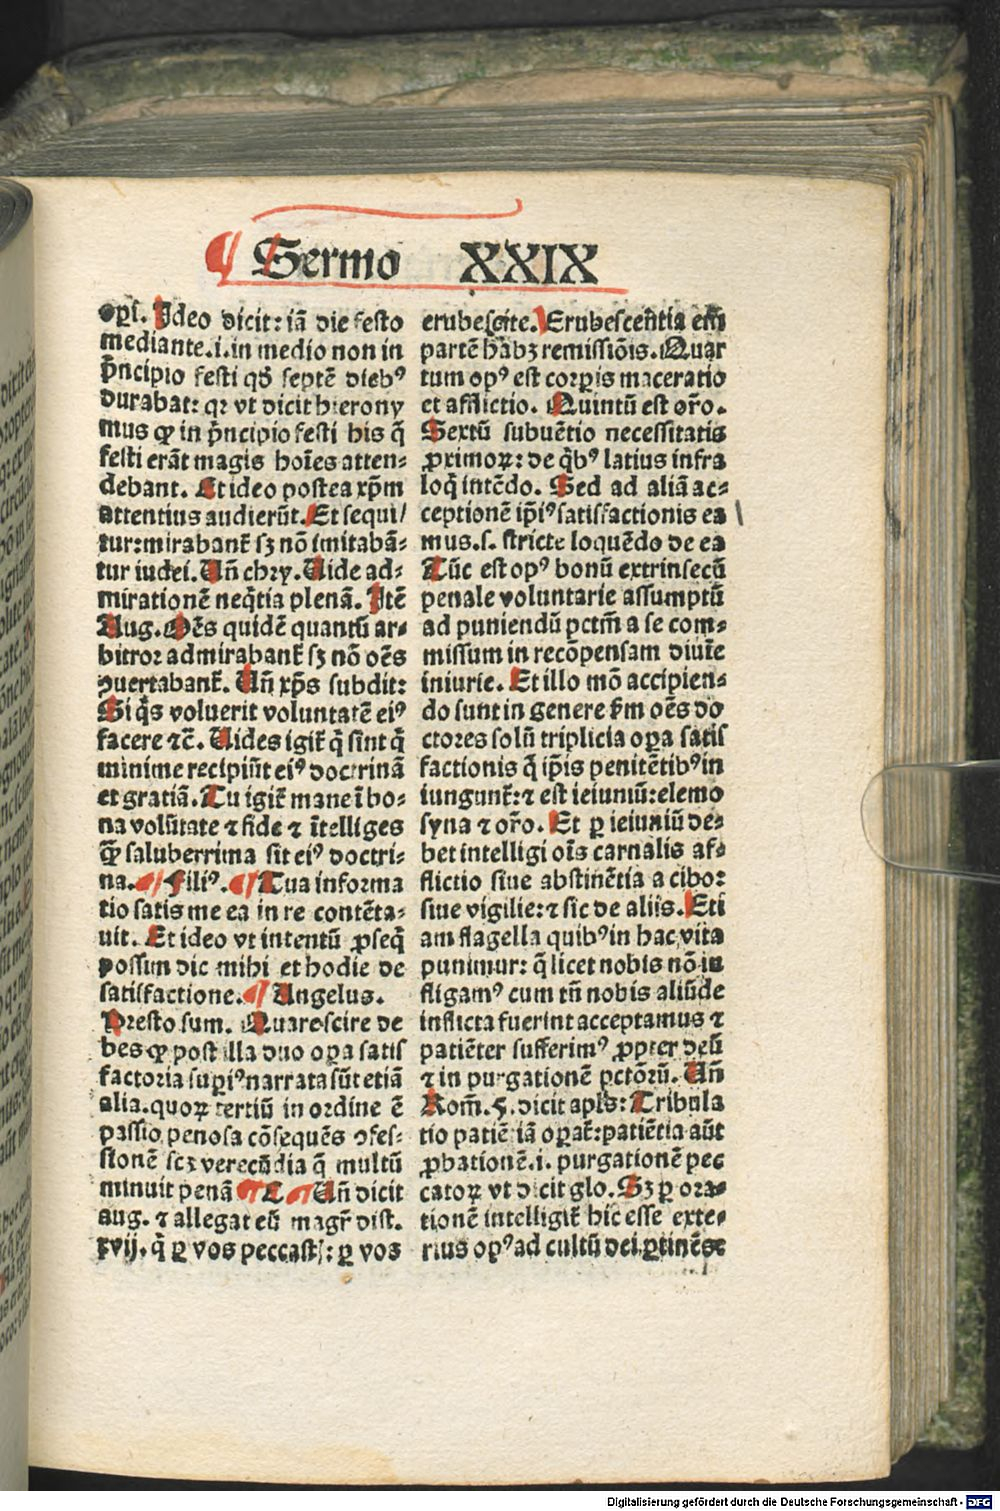 ¶ Sermo XXIX
opꝭ. Ideo dicit: iā die festo
mediante .i. in medio non in
p̄ncipio festi qd̓ septē diebꝰ
durabat: qꝛ vt dicit hierony
mus ꝙ in p̄ncipio festi his q̄
festi erāt magis hoīes atten⸗
debant. Et ideo postea xp̄m
attentius audierūt. Et sequi/
tur: mirabant᷑ sꝫ nō imitabā⸗
tur iudei. Un̄ chꝛy. Uide ad⸗
mirationē neq̄tia plenā. Itē
Aug. Oēs quidē quantū ar⸗
bitroꝛ admirabant᷑ sꝫ nō oēs
ꝯuertabant᷑. Un̄ xp̄s subdit:
Si q̄s voluerit voluntatē eiꝰ
facere ⁊c̄. Uides igit᷑ q̄ sint q̄
minime recipiūt eiꝰ doctrinā
et gratiā. Tu igit᷑ mane ī bo⸗
na volūtate ⁊ fide ⁊ ītelliges
ꝙ̄ saluberrima sit eiꝰ doctri⸗
na. ¶ Filiꝰ. ¶ Tua informa
tio satis me ea in re contēta⸗
uit. Et ideo vt intentū ꝓseq̄
possim dic mihi et hodie de
satisfactione. ¶ Angelus.
Presto sum. Quare scire de
bes ꝙ post illa duo oꝑa satis
factoria suꝑiꝰ narrata sūt etiā
alia. quoꝝ tertiū in oꝛdine ē
passio penosa cōsequēs ꝯfes⸗
sionē scꝫ verecūdia q̄ multū
minuit penā ¶ C ¶ Un̄ dicit
aug. ⁊ allegat eū magr̄ dist.
xvij. q̄ ꝑ vos peccastꝭ: ꝑ vos
erubescite. Erubescentia em̄
partē habꝫ remissiōis. Quar
tum opꝰ est corꝑis maceratio
et afflictio. Quintū est or̄o.
Sextū subuētio necessitatis
ꝓximoꝝ: de q̄bꝰ latius infra
loq̄ intēdo. Sed ad aliā ac⸗
ceptionē ip̄iꝰ satisfactionis ea
mus .s. stricte loquēdo de ea
Tūc est opꝰ bonū extrinsecū
penale voluntarie assumptū
ad puniendū pctm̄ a se com⸗
missum in recōpensam diuīe
iniurie. Et illo mō accipien⸗
do sunt in genere ẜm oēs do
ctores solū triplicia oꝑa satis
factionis q̄ ip̄is penitētibꝰ in
iungunt᷑: ⁊ est ieiuniū: elemo
syna ⁊ or̄o. Et ꝑ ieiuniū de⸗
bet intelligi oīs carnalis af⸗
flictio siue abstinētia a cibo:
siue vigilie: ⁊ sic de aliis. Eti
am flagella quibꝰ in hac vita
punimur: q̄ licet nobis nō in
fligamꝰ cum tn̄ nobis aliūde
inflicta fuerint acceptamus ⁊
patiēter sufferimꝰ ꝓpter deū
⁊ in purgationē pctōrū. Un̄
Rom̄. 5. dicit apl̄s: Tribula
tio patiētiā oꝑat᷑: patiētia aūt
ꝓbationē .i. purgationē pec
catoꝝ vt dicit glo. Sꝫ ꝑ ora⸗
tionē intelligit᷑ hic esse exte⸗
rius opꝰ ad cultū dei ꝑtinēs
Digitalisierung gefördert durch die Deutsche Forschungsgemeinschaft - DFG